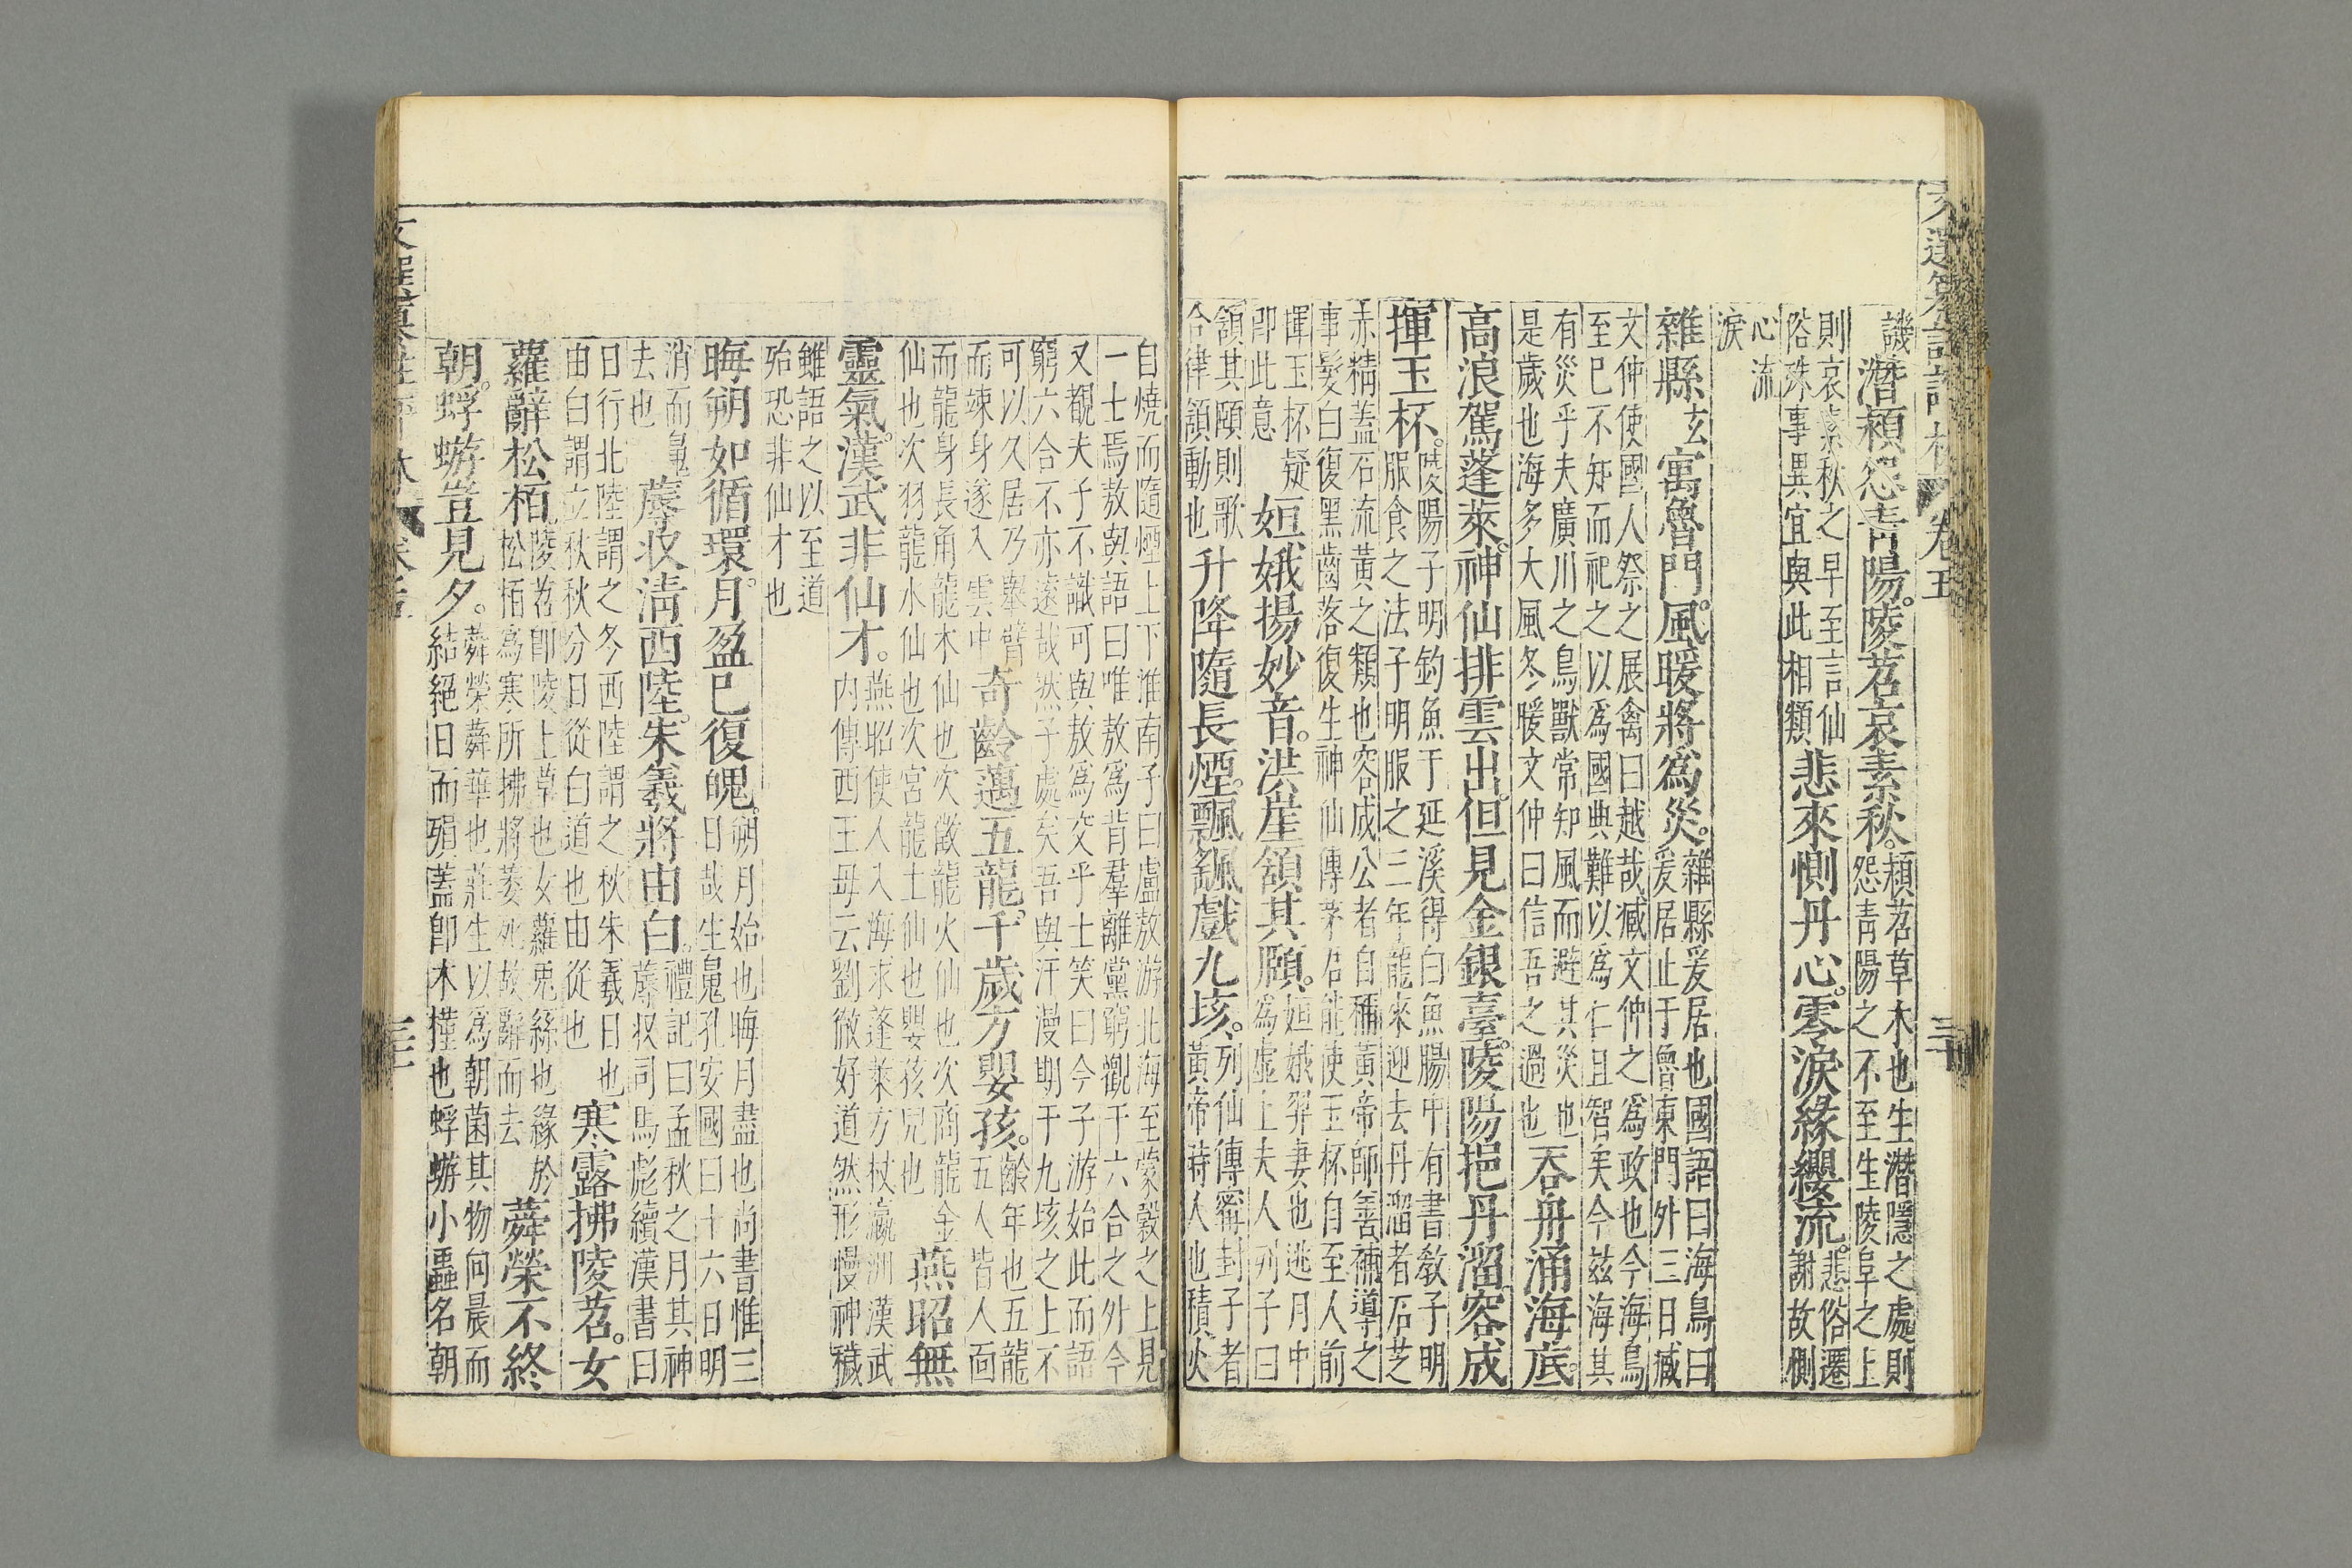 譏潛穎怨青陽陵苕哀素秋穎苕草木也生潛隱之處則
怨青陽之不至生陵阜之上
則哀素秋之早至言仙
俗殊事異宜與此相類悲來惻丹心零淚緣纓流悲俗遷
謝故惻
心流
淚
雜縣玄寓魯門風暖將為災雜縣爰居也國語曰海鳥曰
爰居止于魯東門外三日臧
文仲使國人祭之展禽曰越哉臧文仲之為政也今海鳥
至巳不知而祀之以為國典難以為仁且智矣今茲海其
有災乎夫廣川之鳥獸常知風而避其災也
是歲也海多大風冬暖文仲曰信吾之過也吞舟涌海底
高浪駕蓬萊神仙排雲出但見金銀臺陵陽挹丹溜容成
揮玉杯陵陽子明釣魚于延溪得白魚腸中有書教子明
服食之法子明服之三年龍來迎去丹溜者石芝
赤精蓋石流黃之類也容成公者自稱黃帝師善補導之
事髮白復黑齒落復生神仙傳茅君能使玉杯自至人前
揮玉杯疑
即此意姮娥揚妙音洪崖頷其頤姮娥羿妻也逃月中
為虛上夫人列子曰
頷其頤則歌
合律頷動也升降隨長煙飄颻戲九垓列仙傳甯封子者
黃帝時人也積火
自燒而隨煙上下淮南子曰盧敖游北海至蒙穀之上見
一士焉敖與語曰唯敖為背羣離黨窮觀于六合之外今
又覩夫子不識可與敖為交乎士笑曰今子游始此而語
窮六合不亦遠哉然子處矣吾與汗漫期于九垓之上不
可以久居乃舉臂
而竦身遂入雲中奇齡邁五龍千歲方嬰孩齡年也五龍
五人皆人面
而龍身長角龍木仙也次徵龍火仙也次商龍金
仙也次羽龍水仙也次宮龍土仙也嬰孩兒也燕昭無
靈氣漢武非仙才燕昭使人入海求蓬萊方杖瀛洲漢武
內傳西王母云劉徹好道然形慢神穢
雖語之以至道
殆恐非仙才也
晦朔如循環月盈已復魄朔月始也晦月盡也尚書惟三
日哉生魄孔安國曰十六日明
消而魄
去也蓐收清西陸朱羲將由白禮記曰孟秋之月其神
蓐收司馬彪續漢書曰
日行北陸謂之冬西陸謂之秋朱羲日也
由白謂立秋秋分日從白道也由從也寒露拂陵苕女
蘿辭松栢陵苕即陵上草也女蘿兎絲也緣於
松栢為寒所拂將萎死故辭而去蕣榮不終
朝蜉蝣豈見夕蕣榮蕣華也莊生以為朝菌其物向晨而
結絕日而殞蓋即木槿也蜉蝣小蟲名朝